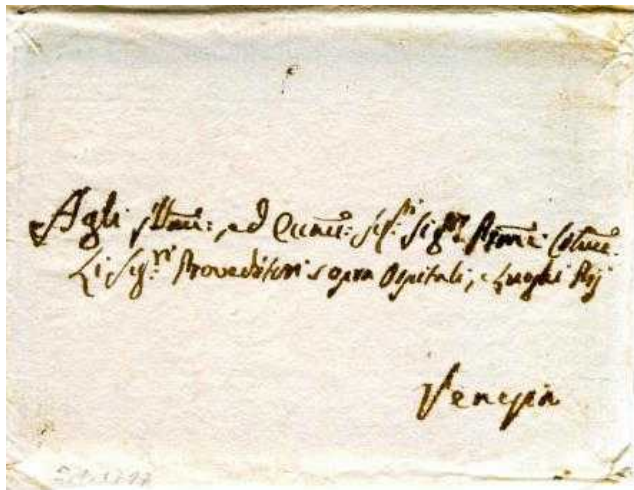 Agli Illmi: ed Eccmi: Sigri Sigri
Li Sigri Proveditori sopra Ospitali, e Luoghi Pij
Venezia